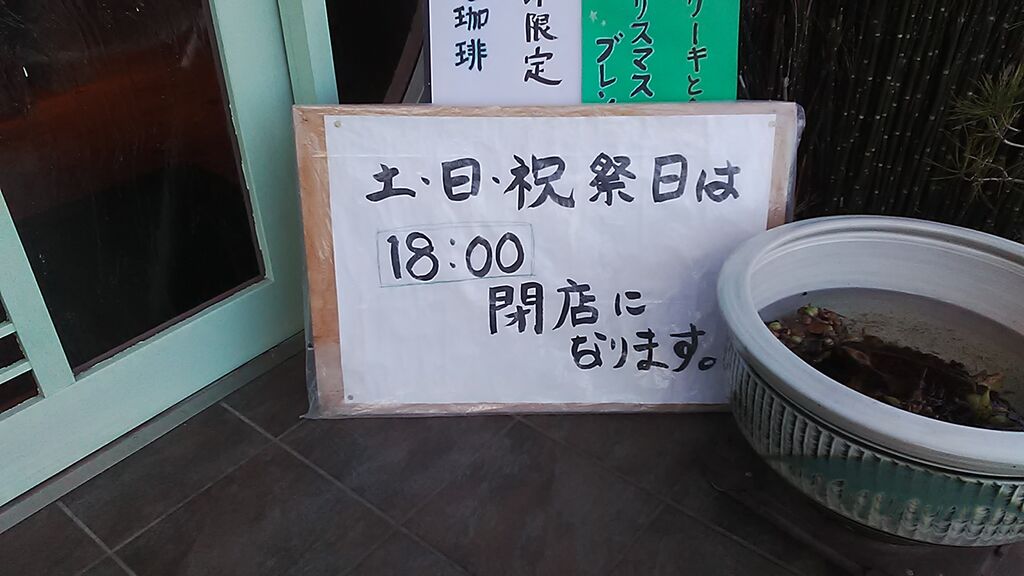 限定
珈琲
ーキと
リスマス
ブレン
土・日・祝祭日は
18:00
閉店に
なります。